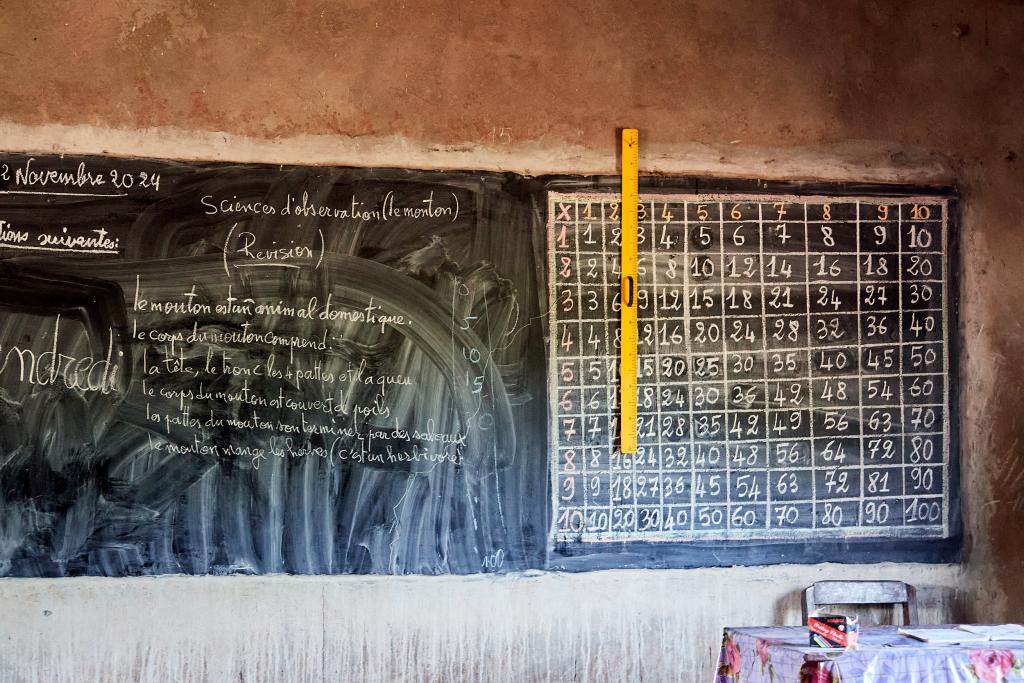 15
2 Novembre 2024
tions suivantes:
ndredi
Sciences d'observation (le mouton)
(Revision)
le mouton est un animal domestique.
le corps du mouton comprend:
la tête, le tronc les 4 pattes et la queu
le corps du mouton est couvert de poils
les pattes du mouton sont terminez par des sabeaux
le mouton mange les herbes (c'est un herbivore)
0
5
10
15
20
100
X 1 2 3 4 5 6 7 8 9 10
1 1 2 3 4 5 6 7 8 9 10
2 2 4 6 8 10 12 14 16 18 20
3 3 6 9 12 15 18 21 24 27 30
4 4 12 16 20 24 28 32 36 40
5 5 1 15 20 25 30 35 40 45 50
6 6 1 18 24 30 36 42 48 54 60
7 7 1 21 28 35 42 49 56 63 70
8 8 16 24 32 40 48 56 64 72 80
9 9 18 27 36 45 54 63 72 81 90
10 10 20 30 40 50 60 70 80 90 100